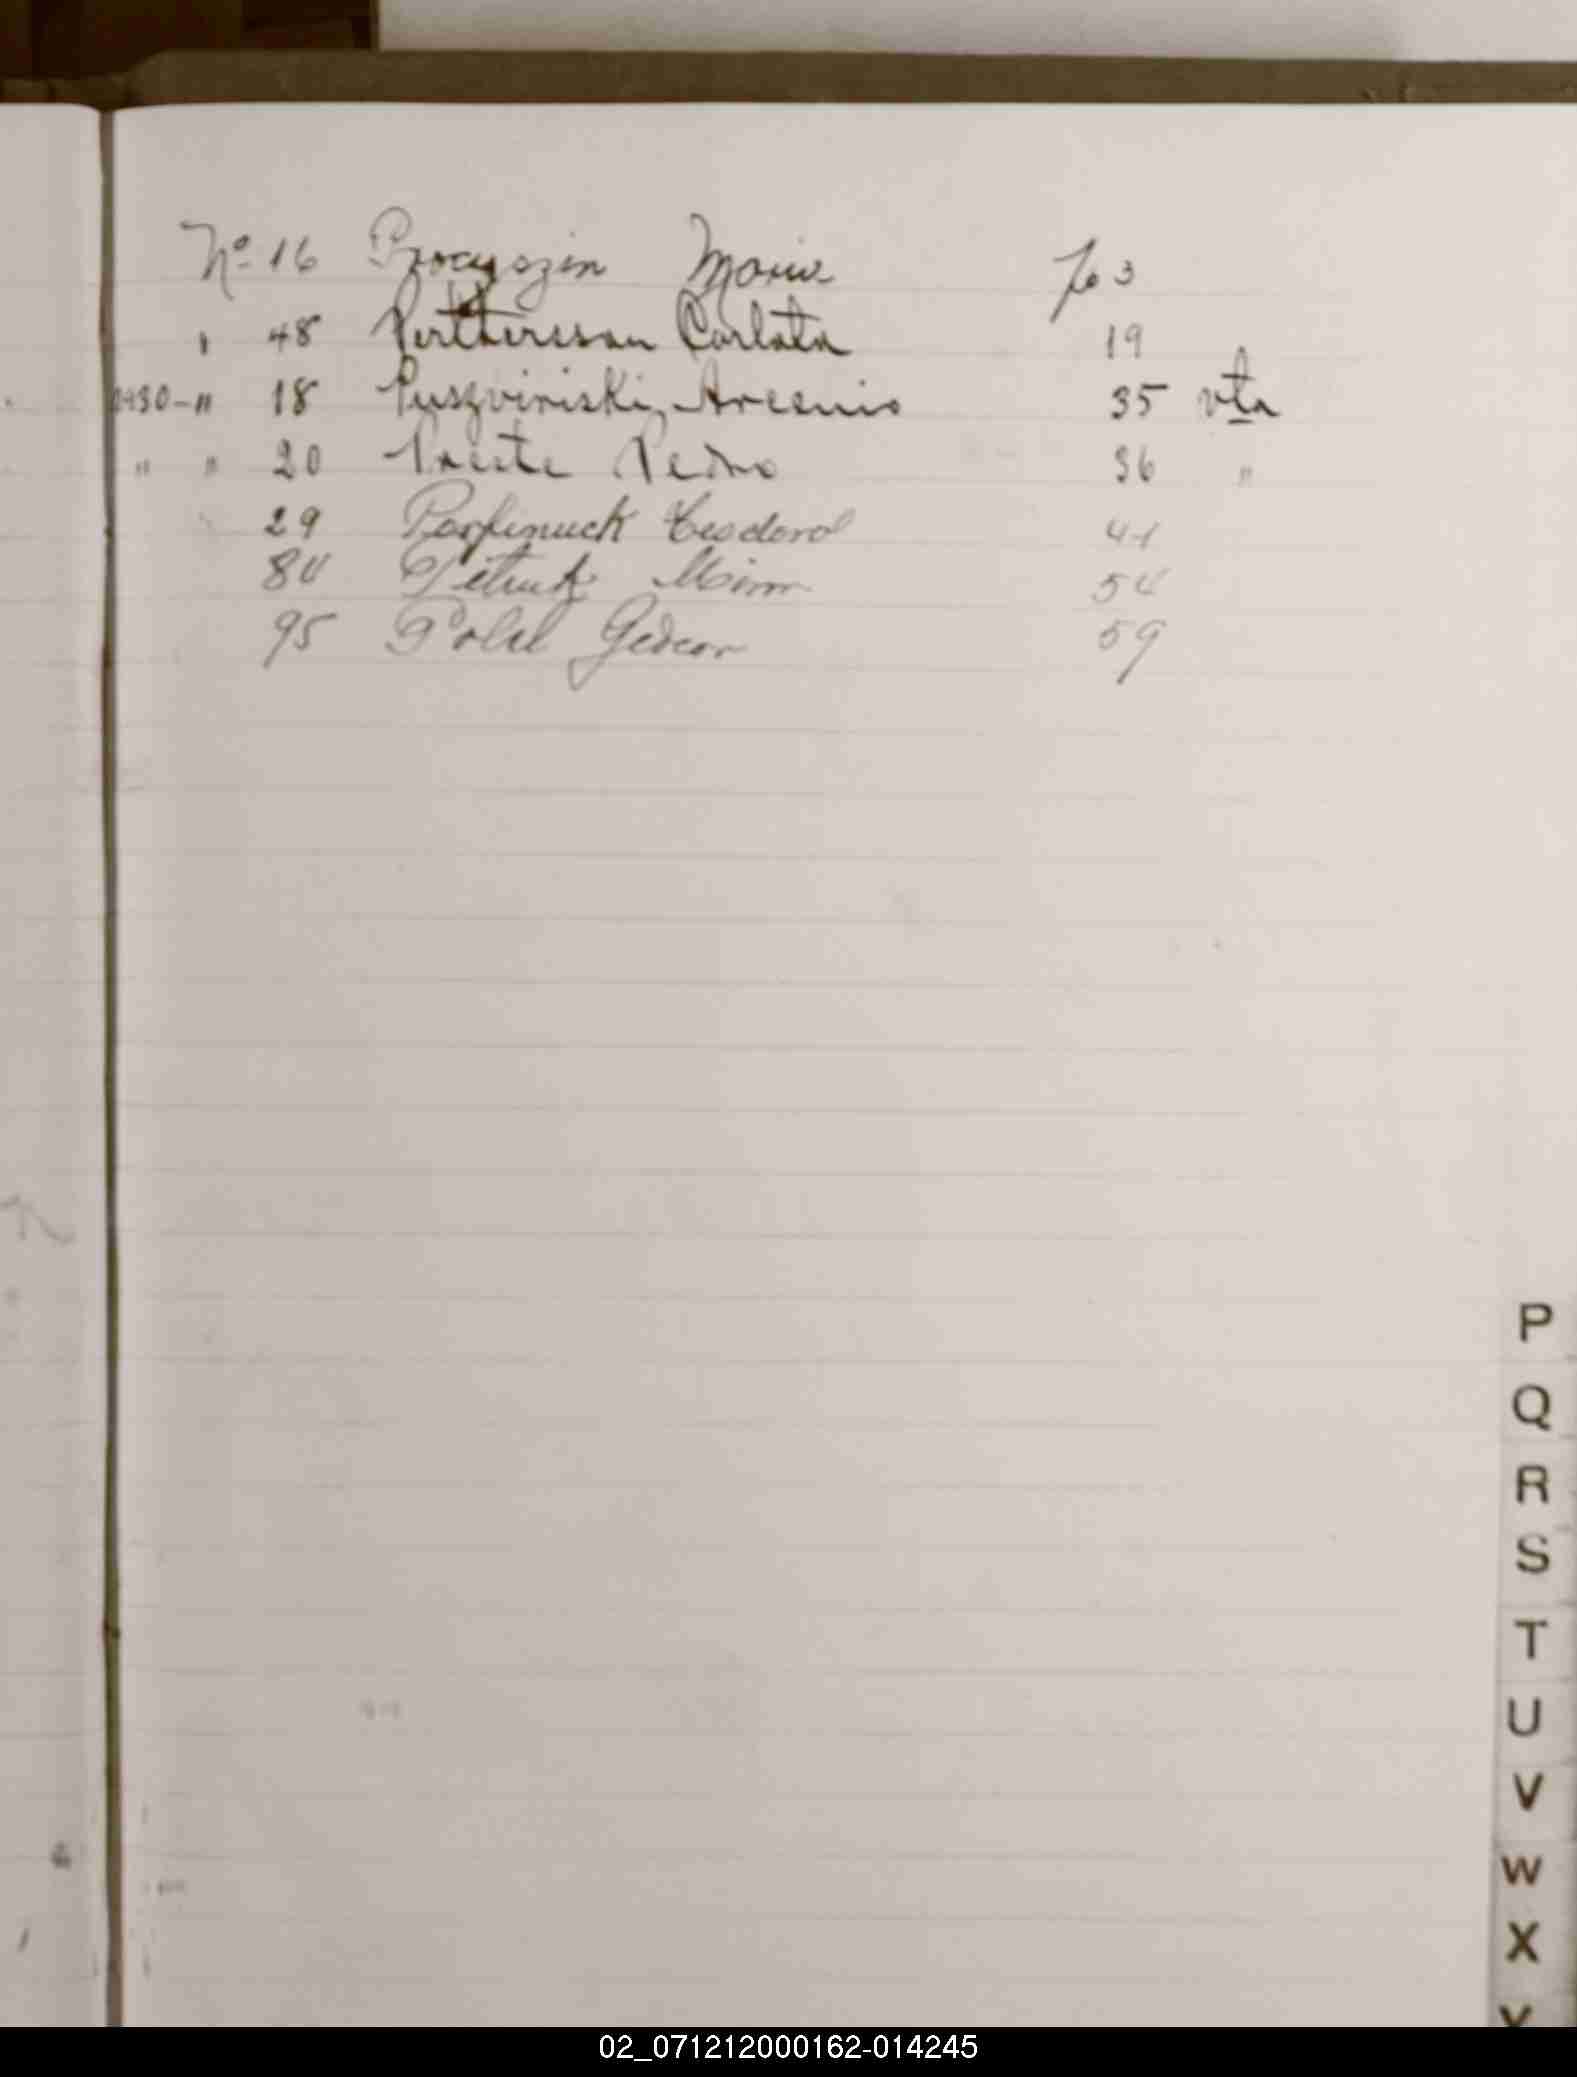 Nº 16 Procyszin Maria fo 3
" 48 Perttersson Carlota 19
1930-" 18 Puszviriski, Arsenio 35 vta
" " 20 Preste Pedro 36 "
29 Parfinuck Teodoro 41
84 Petruk Mirm 54
95 Polel Gedeon 59
P
Q
R
S
T
U
V
W
X
02_071212000162-014245